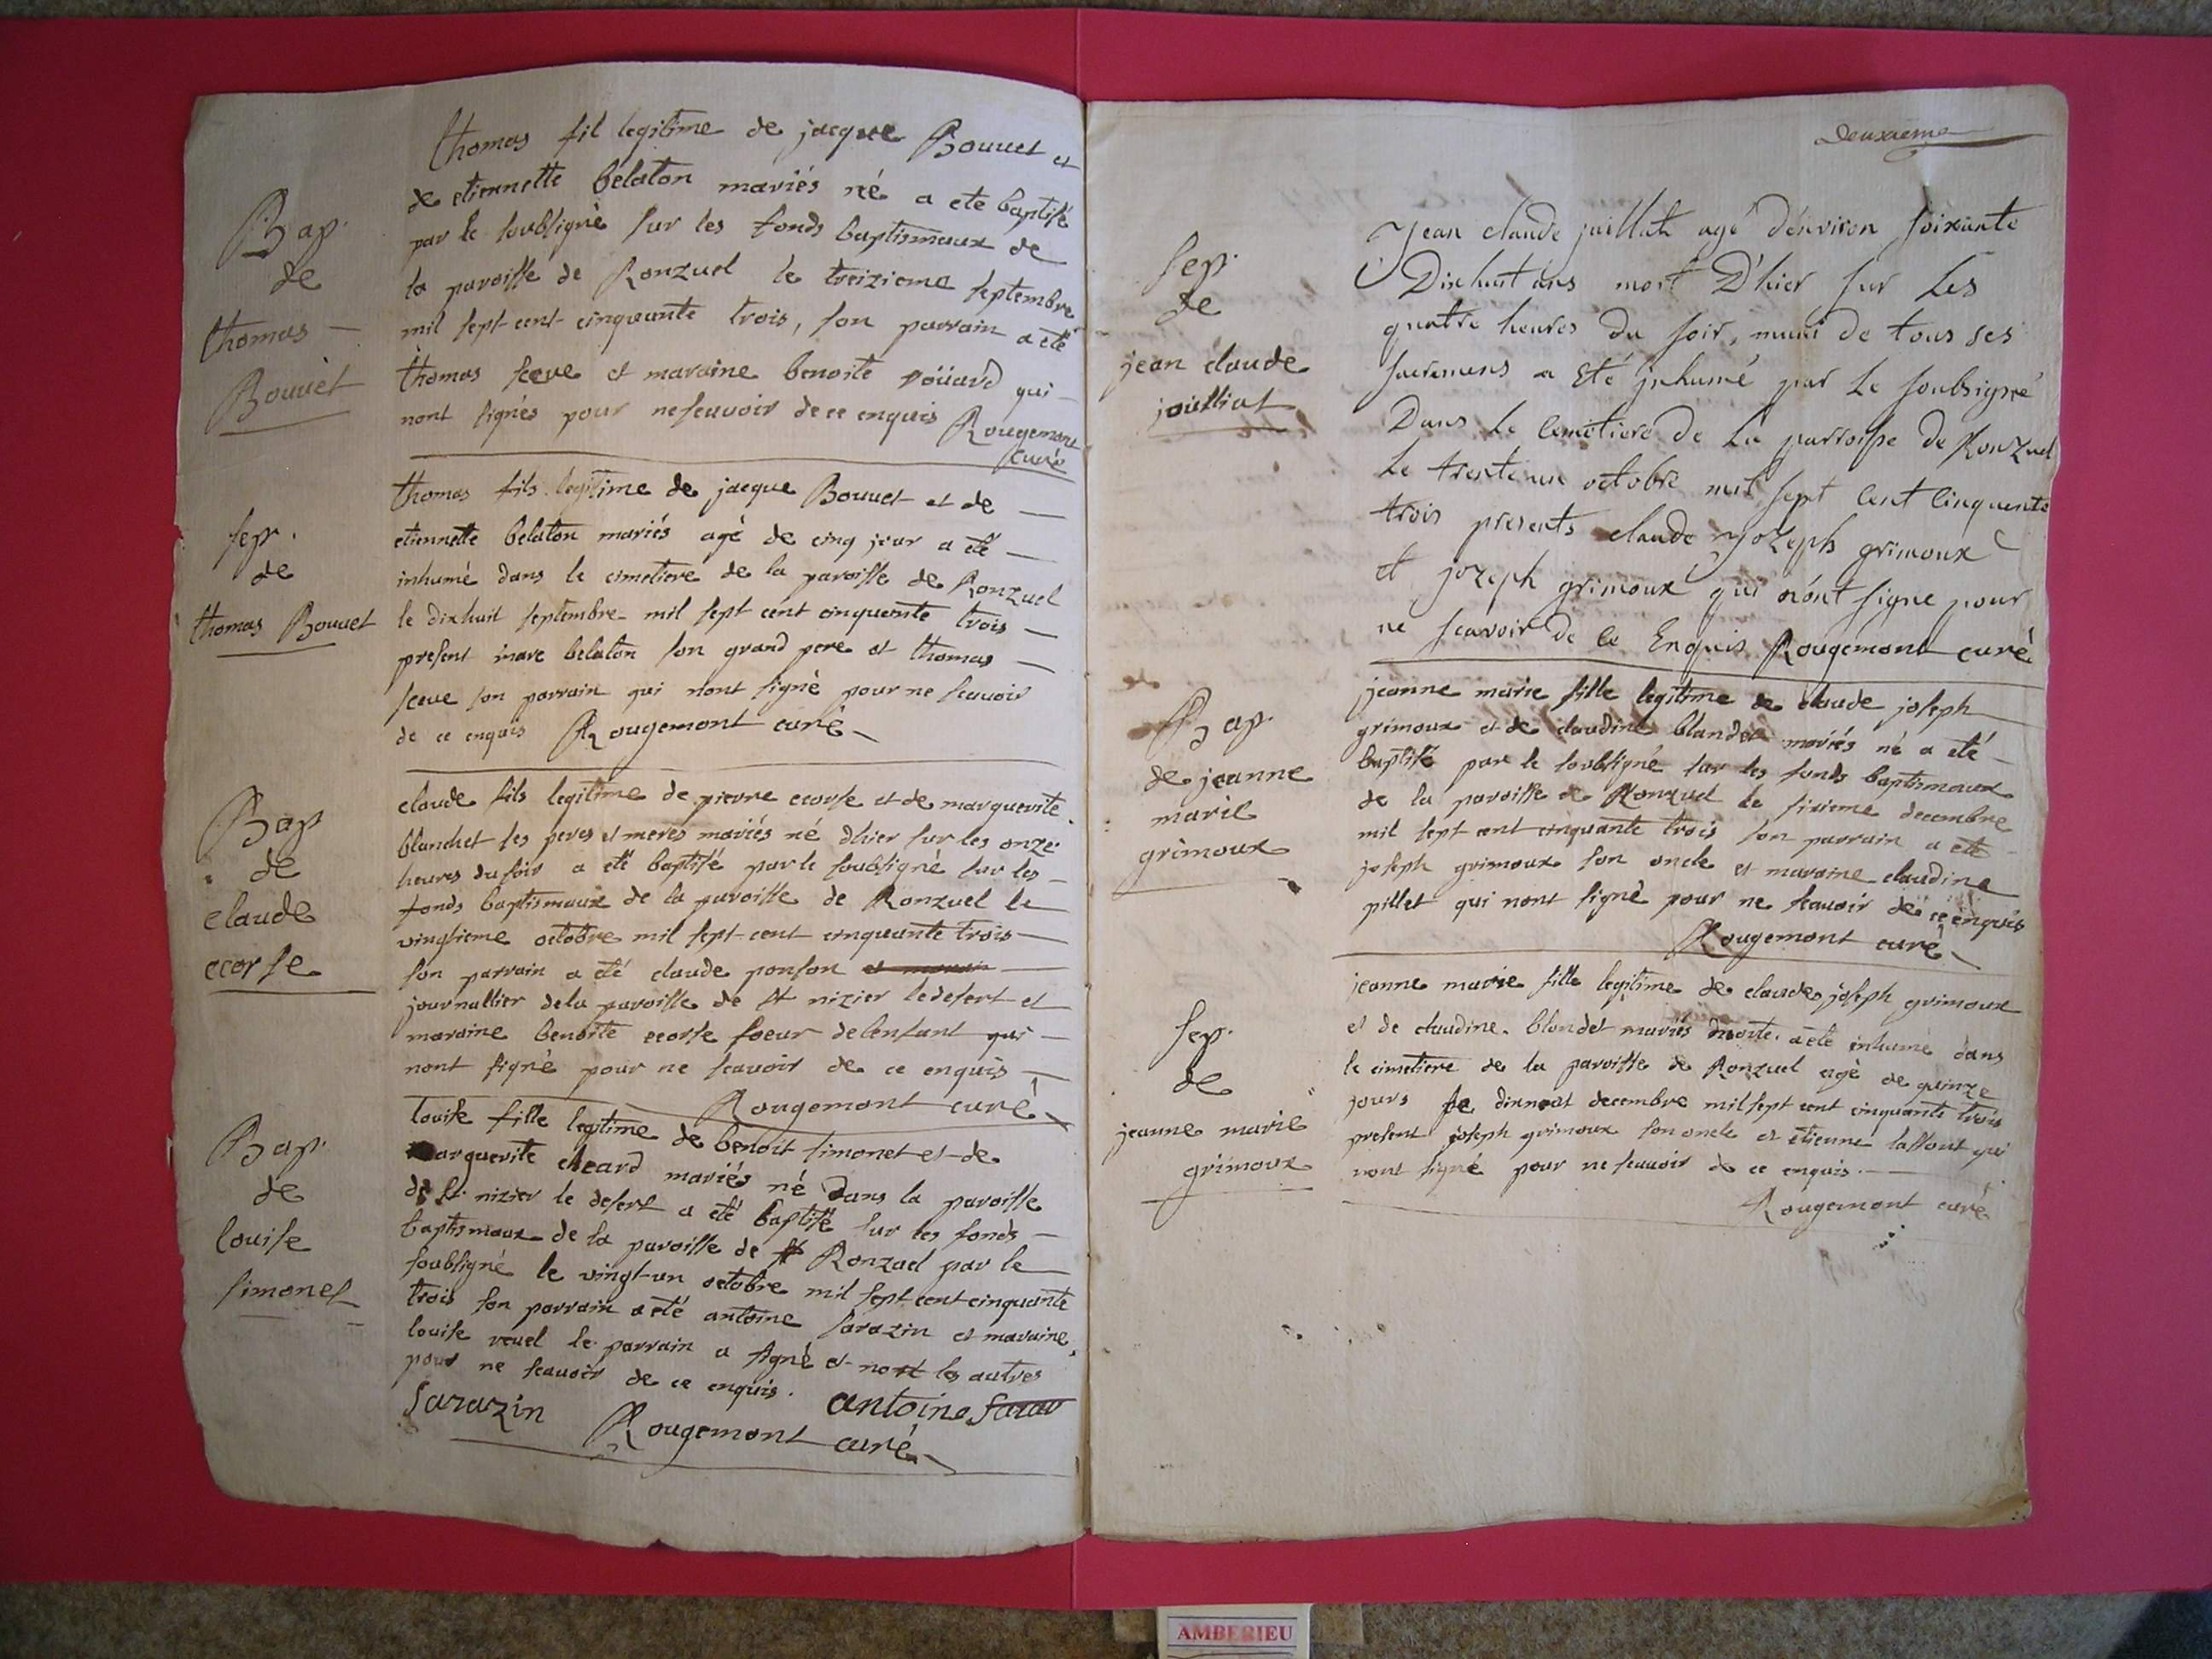 thomas fil legitime de jacque Bouuet et
de etiennette belaton mariés né a eté baptisé
par le soubsigné sur les fonds baptismaux de
la paroisse de Ronzuel le treizieme septembre
mil sept cent cinquante trois, son parrain a eté
thomas sceve et maraine benoite roüard qui
nont signés pour ne scavoir de ce enquis Rougemont
curé
Bap.
de
thomas
Bouuet
thomas fils legitime de jacque Bouuet et de
etiennette belaton mariés agé de cinq jour a eté
inhumé dans le cimetiere de la paroisse de Ronzuel
le dixhuit septembre mil sept cent cinquante trois
present marc belaton son grand pere et thomas
sceve son parrain qui nont signé pour ne scavoir
de ce enquis Rougemont curé
sep.
de
thomas Bouuet
claude fils legitime de pierre ecorse et de marguerite
blanchet ses peres et meres mariés né dhier sur les onze
heures du soir a eté baptisé par le soubsigné sur les
fonds baptismaux de la paroisse de Ronzuel le
vingtieme octobre mil sept cent cinquante trois
son parrain a eté claude ponson et marain
journallier de la paroisse de st nizier le desert et
maraine benoite ecorse soeur de lenfant qui
nont signé pour ne scavoir de ce enquis
Rougemont curé
Bap
de
claude
ecorse
louise fille legitime de benoit simonet et de
marguerite cheard mariés né dans la paroisse
de st. nizier le desert a eté baptisé sur les fonds
baptismaux de la paroisse de st Ronzuel par le
soubsigné le vingt un octobre mil sept cent cinquante
trois son parrain a eté antoine sarazin et maraine
louise revel le parrain a signé et nont les autres
pour ne scavoir de ce enquis. antoine sarar
sarazin Rougemont curé
Bap.
de
louise
simonet
Deuxieme
Jean claude juillat agé d'environ soixante
Dixhuit ans mort D'hier sur Les
quatre heures du soir, muni de tous ses
sacremens a Eté inhumé par Le soubsigné
Dans Le Cimetiere de La parroisse de Ronzuel
Le trente un octobre mil sept Cent Cinquante
trois presents claude Jozeph grimoux
et jozeph grimoux qui n'ont signe pour
ne scavoir de Ce Enquis Rougemont curé
sep.
de
jean claude
joulliat
jeanne marie fille legitime de claude joseph
grimoux et de claudine blandet mariés né a eté
baptisé par le soubsigné sur les fonds baptismaux
de la paroisse de Ronzuel le sixieme decembre
mil sept cent cinquante trois son parrain a eté
joseph grimoux son oncle et maraine claudine
pillet qui nont signé pour ne scavoir de ce enquis
Rougemont curé
Bap.
de jeanne
marie
grimoux
jeanne marie fille legitime de claude joseph grimoux
et de claudine blondet mariés morte a eté inhumé dans
le cimetiere de la paroisse de Ronzuel agé de quinze
jours le decembre mil sept cent cinquante trois
present joseph grimoux son oncle et etienne lassont qui
nont signé pour ne scavoir de ce enquis.
Rougemont curé
sep.
de
jeanne marie
grimoux
AMBERIEU